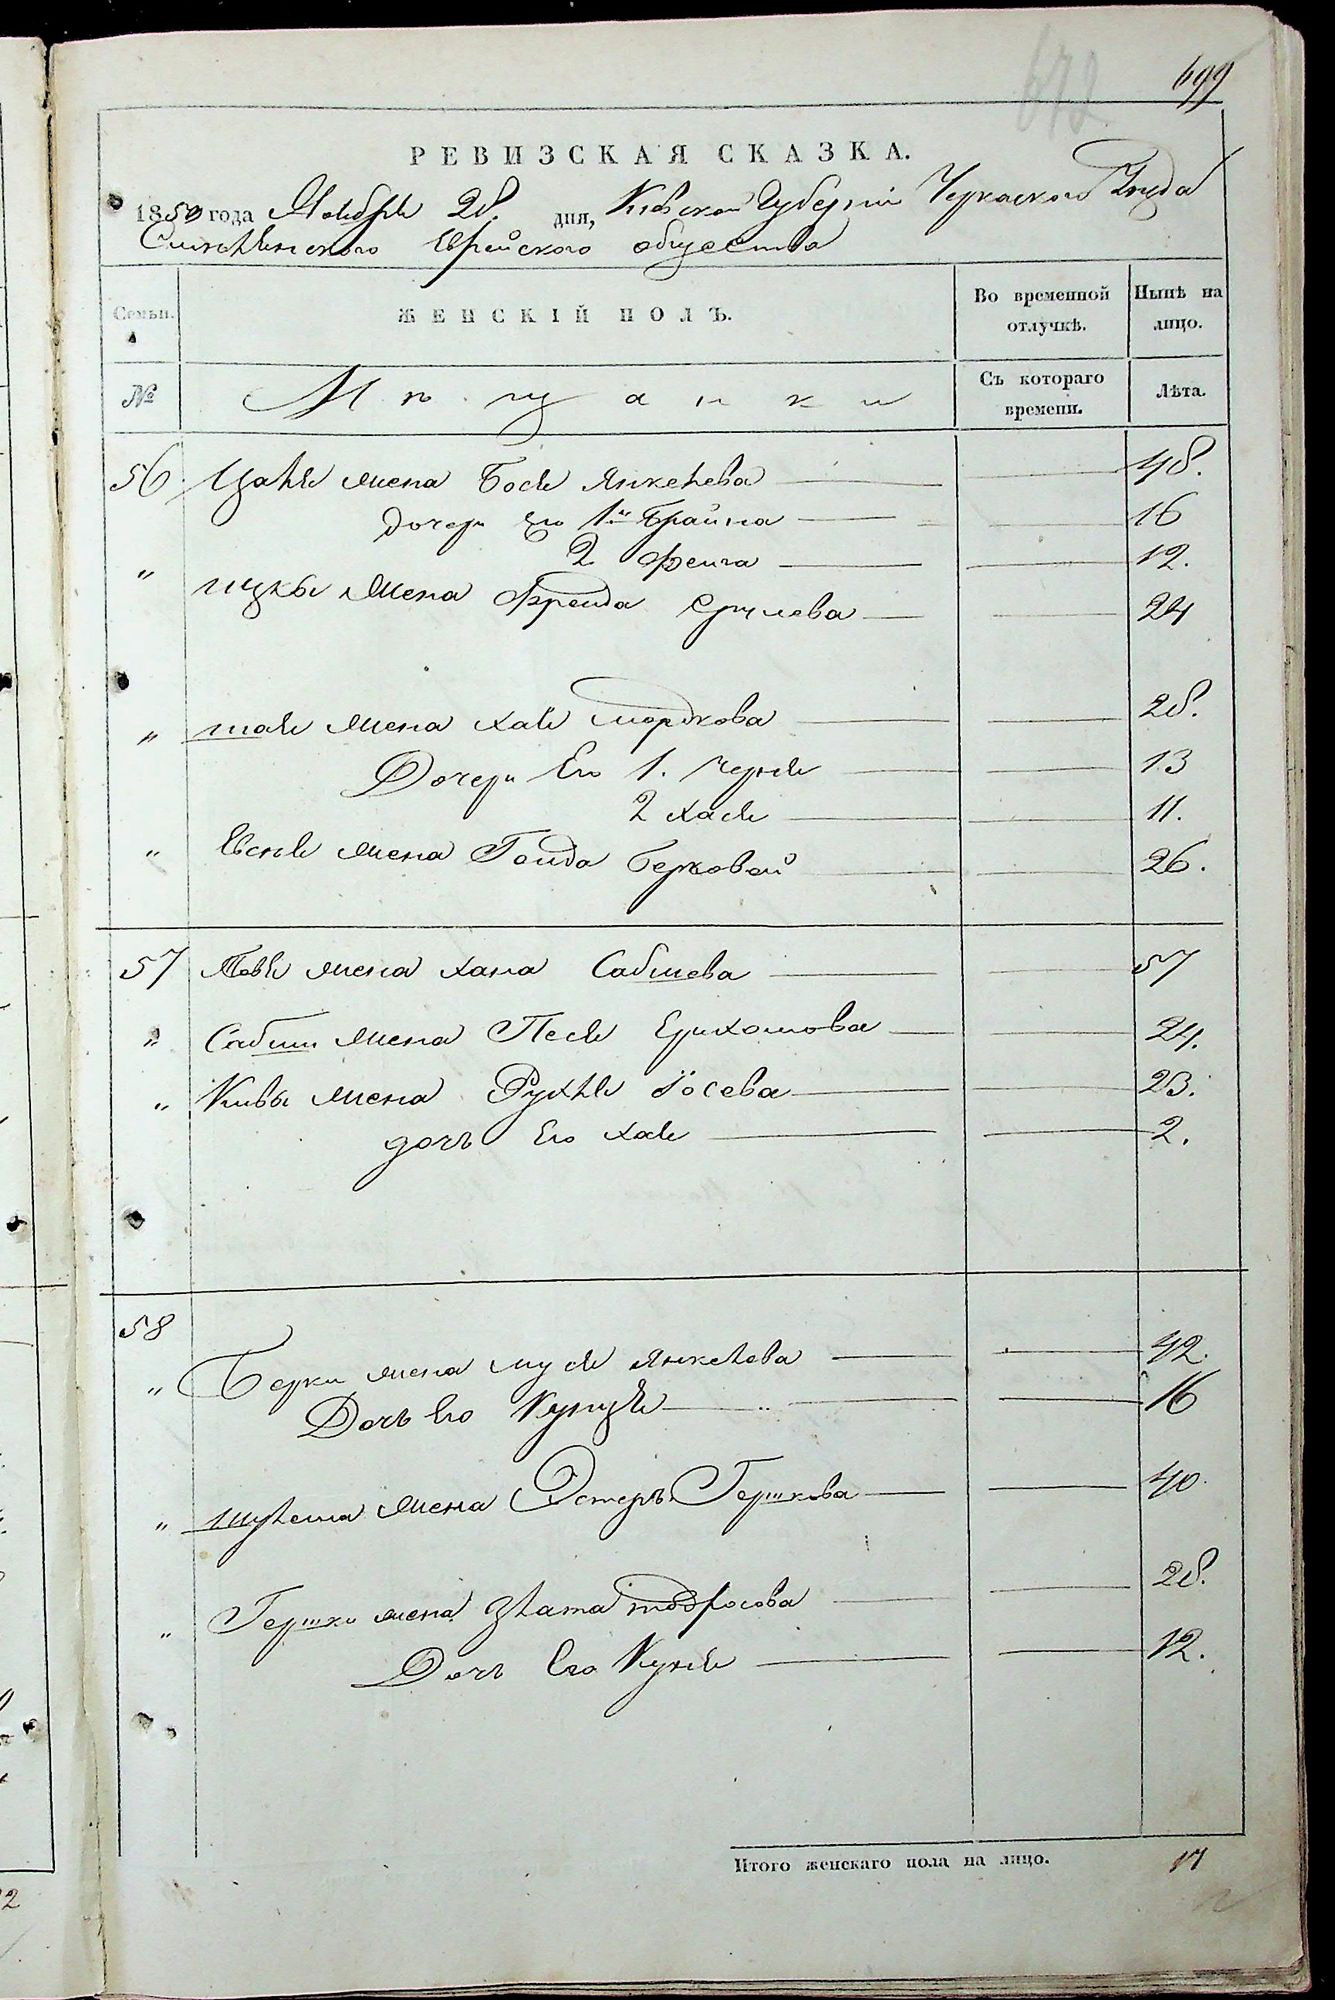 672
699
РЕВИЗСКАЯ СКАЗКА.
1850 года Ноября 28. дня, Киевской Губернии Черкаского Уезда
Смелянского Еврейского общества
Семьи. ЖЕНСКІЙ ПОЛЪ. Во временной отлучкѣ. Нынѣ на лицо.
№ Мещанки Съ котораго времени. Лѣта.
56 жена Бося Янкелева 48.
дочери его 1я Брайна 16
2 Фейга 12.
" Ицки жена Фрейда Срулева 24
" Шая жена Хая Мордкова 28.
Дочери Его 1. Черня 13
2 Хася 11.
" жена Гоlда Берковой 26.
57 жена Хана Сабшева 57
" Сабши жена Песя 24.
" Кивы жена Рухля Іосева 23.
дочь Его Хая 2.
58
" Берки жена Муся Янкелева 42.
Дочь Его 16
" жена Эстеръ Гершкова 40.
" Гершки жена Злата Тодросова 28.
Дочь Его Куня 12.
Итого женскаго пола на лицо. 17